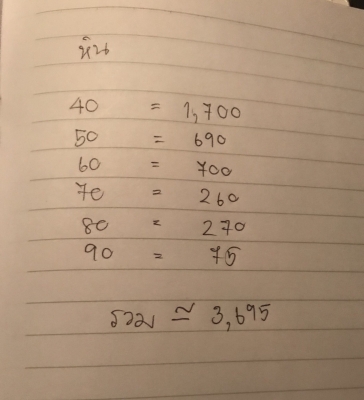 หิน
40 = 1,700
50 = 690
60 = 700
70 = 260
80 = 270
90 = 75
รวม ≃ 3,695